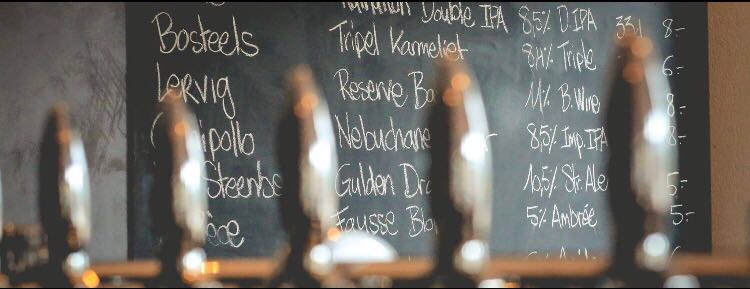 Double IPA 8,5% D.IPA 33l 8,-
Bosteels Tripel Karmeliet 8,4% Triple 6,-
Lervig Reserve 11% B.Wine 8,-
Nebuchane 8,5% Imp.IPA 8,-
Steenbe Gulden Dra 10,5% Str.Ale 5,-
Fausse Blo 5% Ambrée 5,-